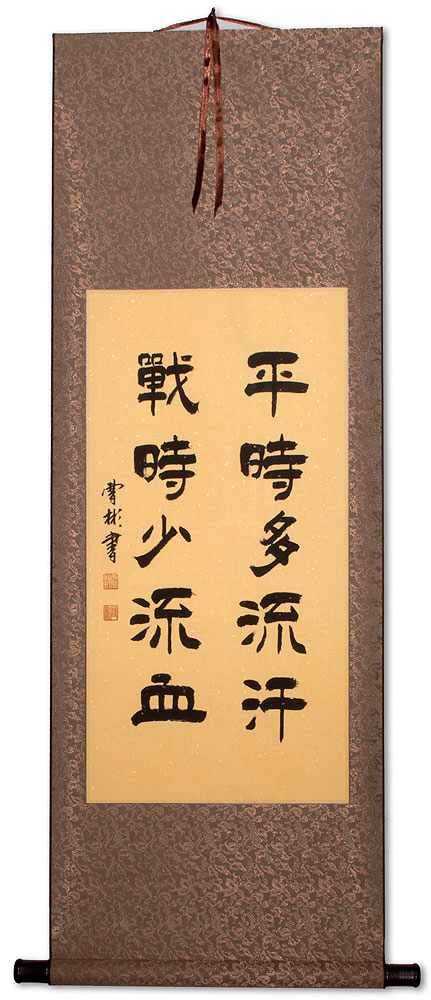 平時多流汗
戰時少流血
彬書